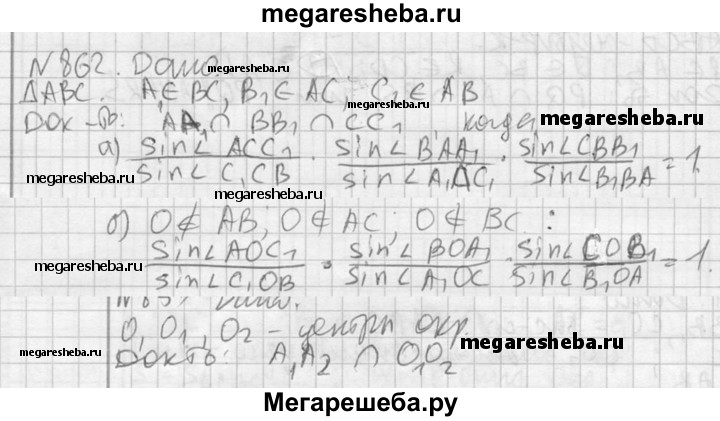 megaresheba.ru
N 862. Дано: megaresheba.ru
ΔABC. A₁∈ BC, B₁∈ AC, C₁∈ AB megaresheba.ru
Док-ть: AA₁ ∩ BB₁ ∩ CC₁ когда megaresheba.ru
а) sin∠ ACC₁ / sin∠ C₁CB · sin∠ BAA₁ / sin∠ A₁AC · sin∠ CBB₁ / sin∠ B₁BA = 1.
megaresheba.ru megaresheba.ru megaresheba.ru
б) O∉ AB; O∉ AC; O∉ BC:
sin∠ AOC₁ / sin∠ C₁OB · sin∠ BOA₁ / sin∠ A₁OC · sin∠ COB₁ / sin∠ B₁OA = 1.
megaresheba.ru
O, O₁, O₂ - центры окр.
megaresheba.ru Док-ть: A₁A₂ ∩ O₁O₂ megaresheba.ru
Мегарешеба.ру